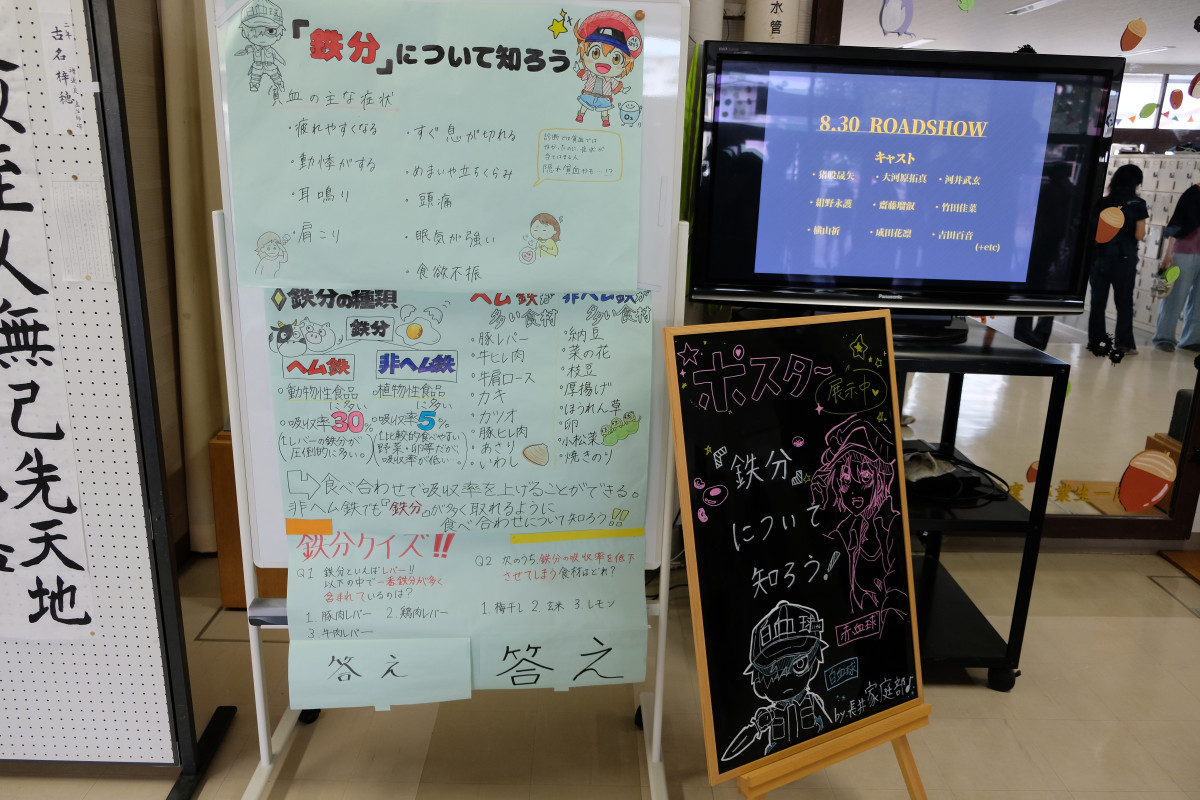 二年
古名梓穂
至人無己先天地
「鉄分」について知ろう
貧血の主な症状
・疲れやすくなる
・動悸がする
・耳鳴り
・肩こり
・すぐ息が切れる
・めまいや立ちくらみ
・頭痛
・眠気が強い
・食欲不振
診断では貧血では
なかったのに、症状が
隠れ貧血かも…!?
O₂
鉄分の種類
鉄分
ヘム鉄
非ヘム鉄
○動物性食品
に多い
○吸収率30%
(レバーの鉄分が
圧倒的に多い。)
○植物性食品
に多い
○吸収率5%
(比較的食べやすい
野菜・卵等だが
吸収率が低い)
ヘム鉄が
多い食材
・豚レバー
・牛ヒレ肉
・牛肩ロース
・カキ
・カツオ
・豚ヒレ肉
・あさり
・いわし
非ヘム鉄が
多い食材
・納豆
・菜の花
・枝豆
・厚揚げ
・ほうれん草
・卵
・小松菜
・焼きのり
食べ合わせで吸収率を上げることができる。
非ヘム鉄でも『鉄分』が多く取れるように
食べ合わせについて知ろう!!
鉄分クイズ!!
Q1 鉄分といえばレバー!!
以下の中で一番鉄分が多く
含まれているのは?
1. 豚肉レバー 2. 鶏肉レバー
3. 牛肉レバー
答え
Q2 次のうち、鉄分の吸収率を低下
させてしまう食材はどれ?
1 梅干し 2. 玄米 3. レモン
答え
水管
8.30 ROADSHOW
キャスト
・猪股晟矢 ・大河原拓真 ・河井武玄
・紺野永護 ・齋藤瑠叡 ・竹田佳菜
・横山祈 ・成田花凛 ・吉田百音
(+etc)
Panasonic
ポスター
展示中
鉄分
について
知ろう!
赤血球
白血球
白血球
by.長井家庭部♪